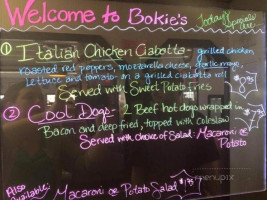 Welcome to Bokie's
Today's
Specials
are:
① Italian Chicken Ciabatta - grilled chicken,
roasted red peppers, mozzarella cheese, garlic mayo,
lettuce and tomato on a grilled ciabatta roll
Served with Sweet Potato fries
② Cool Dogs - 2 Beef hot dogs wrapped in
Bacon and deep fried, topped with Coleslaw
Served with choice of Salad: Macaroni or
Potato
Also
available:
Macaroni or Potato Salad